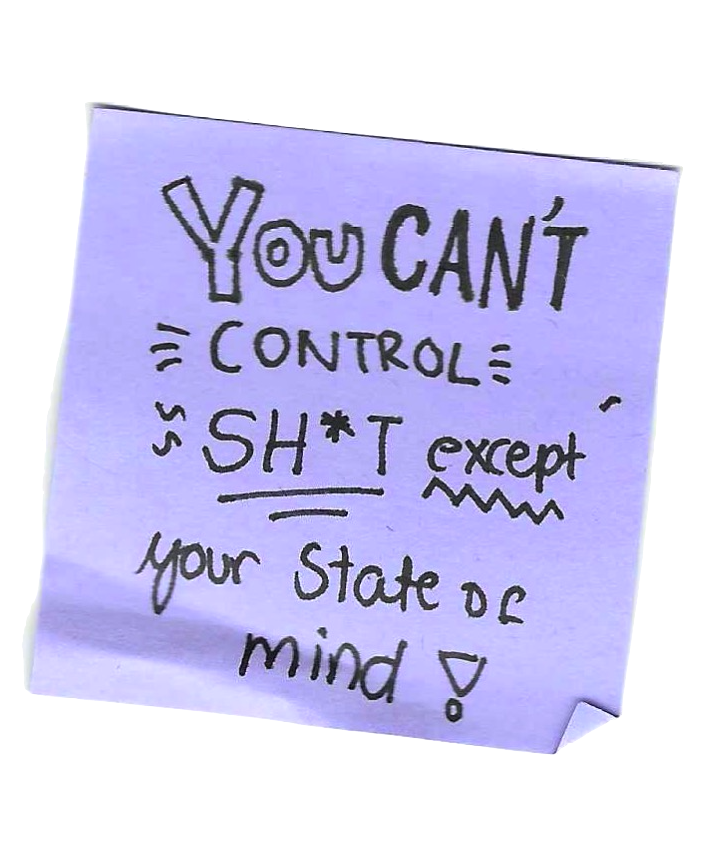 You CAN'T
CONTROL
SH*T except
your State of
mind!